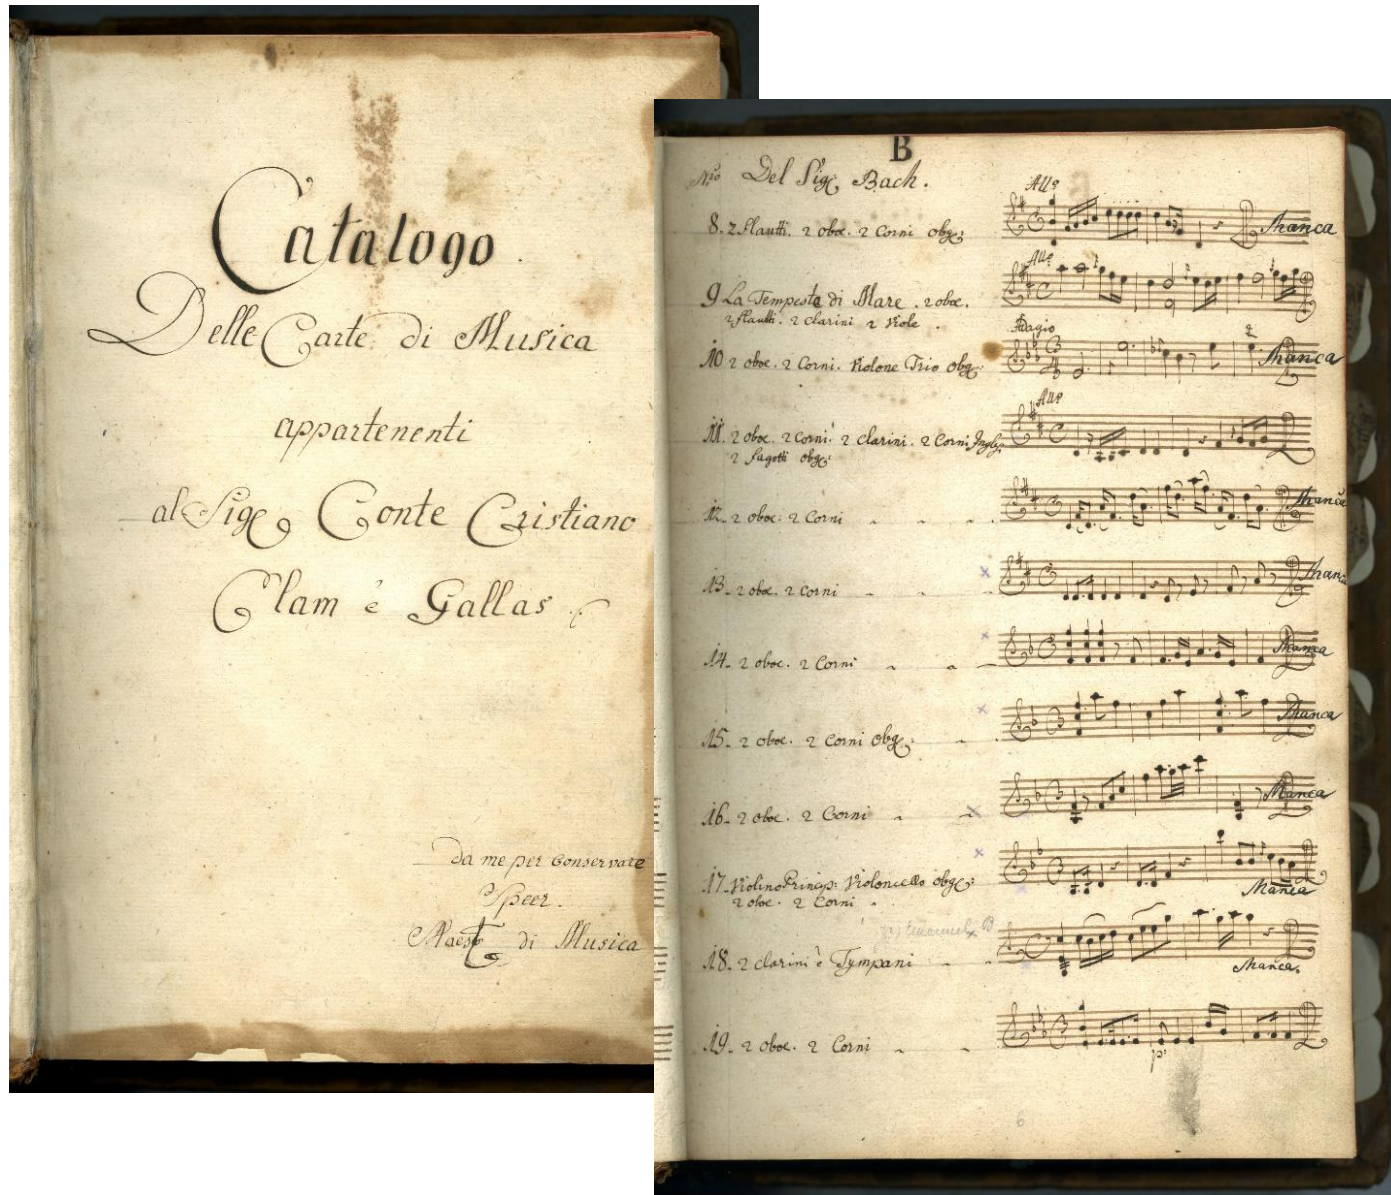 Catalogo
Delle Carte di Musica
appartenenti
al Sigr Conte Cristiano
Clam è Gallas
da me per conservate
Speer.
Maest di Musica
B
Nrio Del Sigr Bach.
8. 2 flautti. 2 oboe. 2 Corni obg: Allo Manca
9 La Tempesta di Mare. 2 oboe. Allo
2 flautti. 2 clarini 2 Viole.
10 2 oboe. 2 Corni. Violone Trio obg: Adagio 2 Manca
11. 2 oboe. 2 Corni. 2 clarini. 2 Corni Ingl: Allo
2 fagotti obg:
12. 2 oboe. 2 Corni Manca
13. 2 oboe. 2 Corni Manca
14. 2 oboe. 2 Corni Manca
15. 2 oboe. 2 Corni obg: Manca
16. 2 oboe. 2 Corni Manca
17. Violino Princip: Violoncello obg: Manca
2 oboe. 2 Corni
Emanuel B
18. 2 clarini è Tympani Manca.
19. 2 oboe. 2 Corni
p:
6